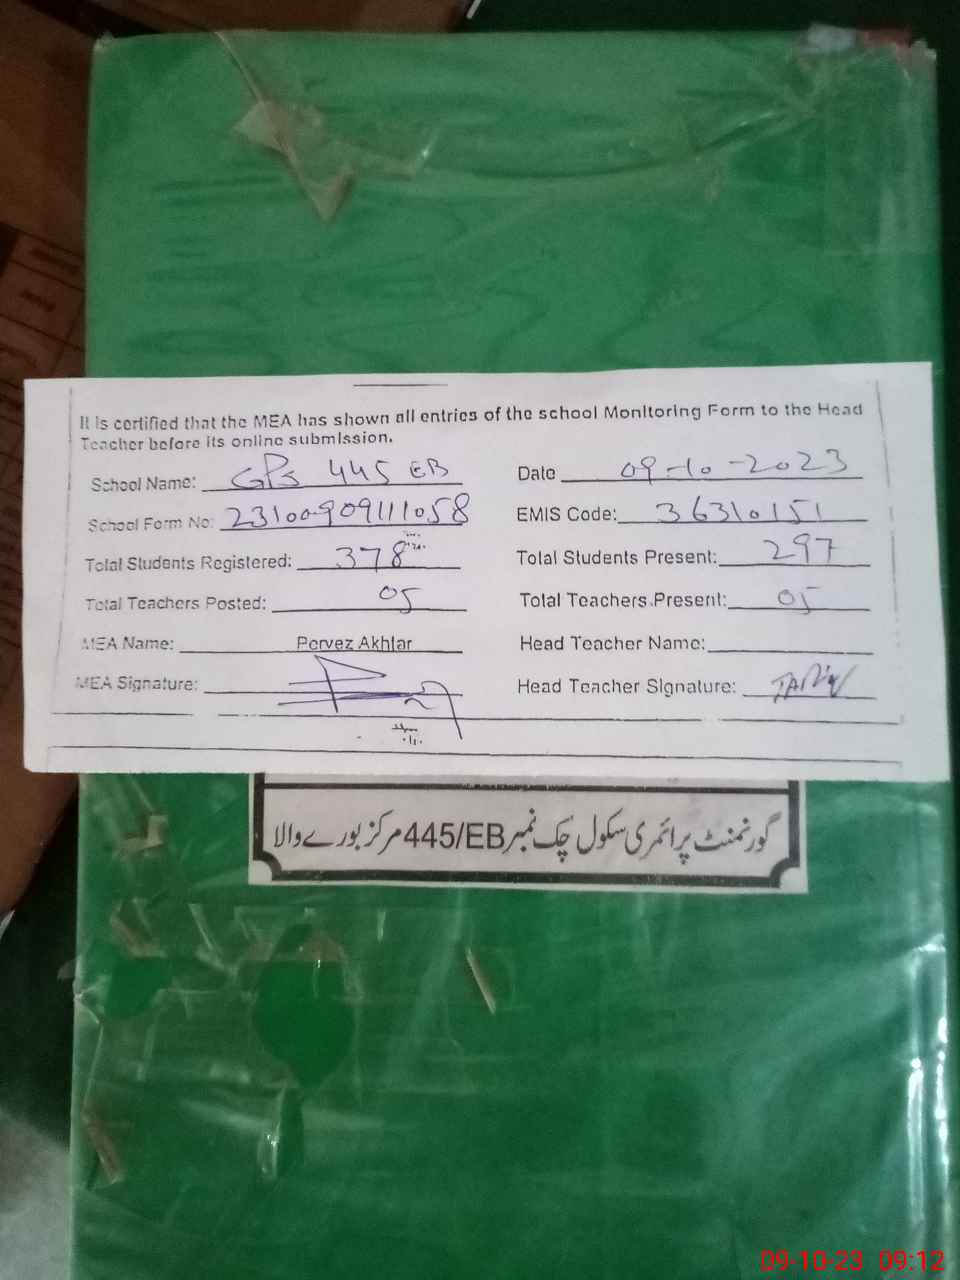 It is certified that the MEA has shown all entries of the school Monitoring Form to the Head
Teacher before its online submission.
School Name: GPS 445 EB Date 09-10-2023
School Form No: 23100909111058 EMIS Code: 36310151
Total Students Registered: 378 Total Students Present: 297
Total Teachers Posted: 05 Total Teachers Present: 05
MEA Name: Pervez Akhtar Head Teacher Name:
MEA Signature: Head Teacher Signature: TARIQ
گورنمنٹ پرائمری سکول چک نمبر 445/EB مرکز بورے والا
09-10-23 09:12